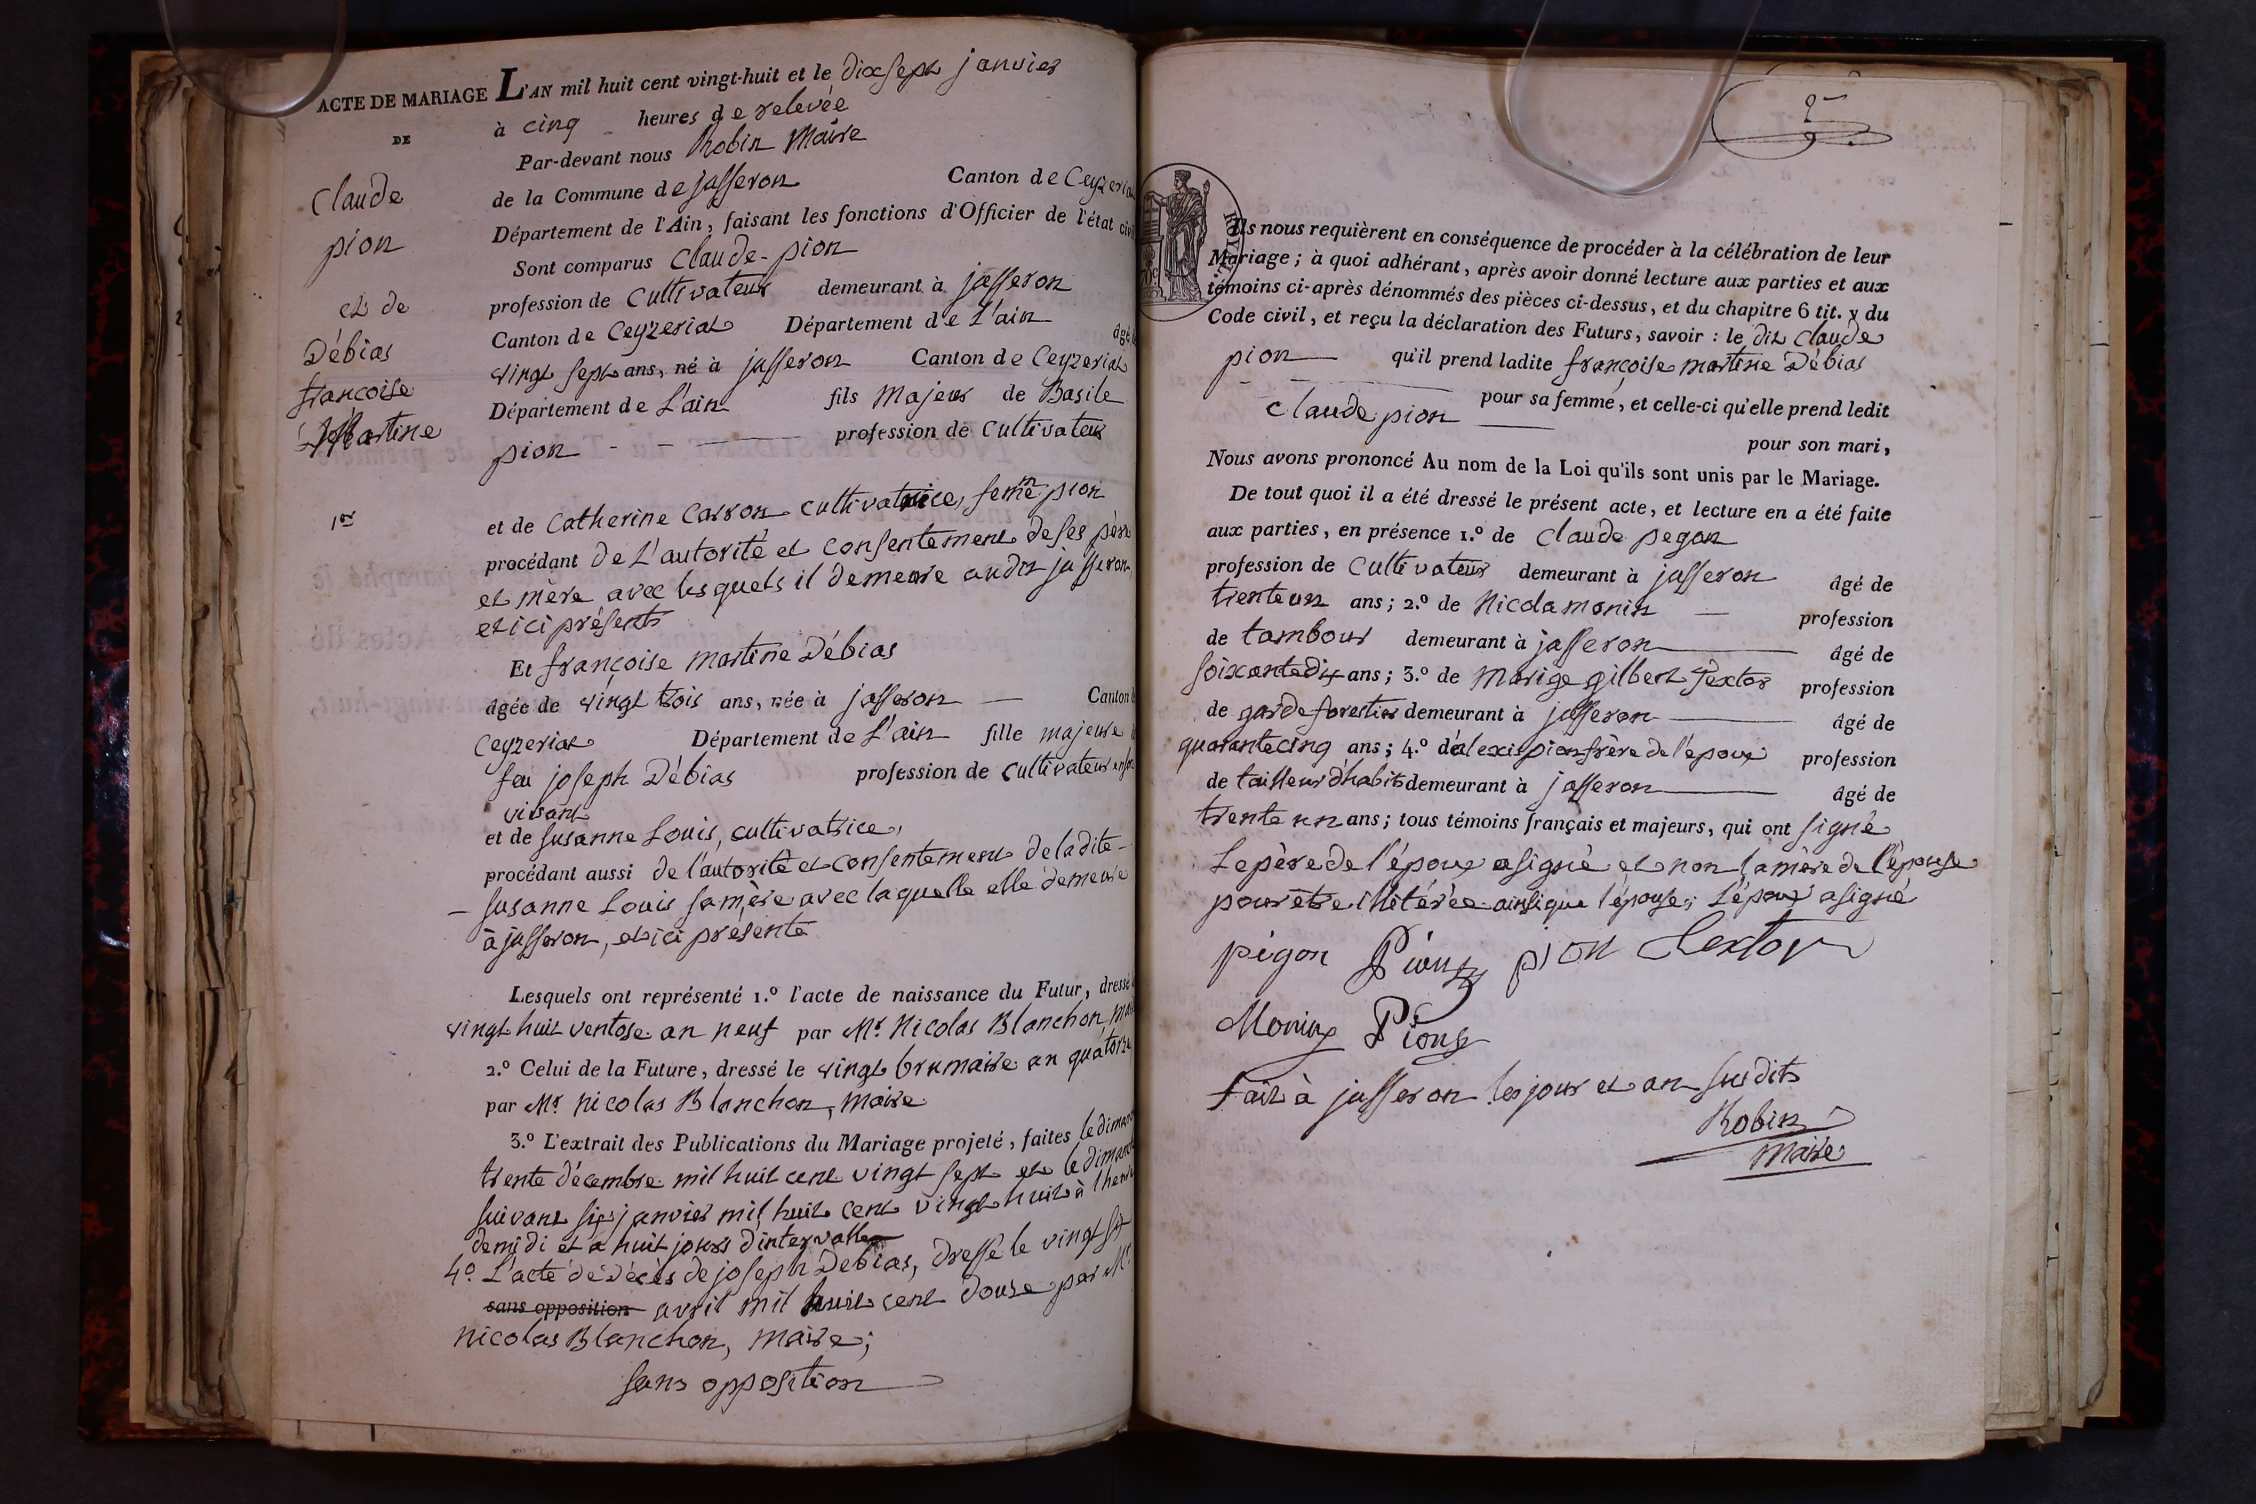 ACTE DE MARIAGE L'AN mil huit cent vingt-huit et le dix sept janvier
DE
à cinq heures de relevée
Par-devant nous Robin Maire
Claude
de la Commune de jasseron Canton de Ceyzeriat
pion
Département de l'Ain, faisant les fonctions d'Officier de l'état civil
Sont comparus Claude pion
et de
profession de Cultivateur demeurant à jasseron
Débias
Canton de Ceyzeriat Département de L'ain âgé de
françoise
vingt sept ans, né à jasseron Canton de Ceyzeriat
Martine
Département de L'ain fils Majeur de Basile
pion profession de Cultivateur
1er
et de Catherine Carron cultivatrice, femme pion
procédant de L'autorité et consentement de ses père
et mère avec lesquels il demeure audit jasseron,
et ici présents
Et françoise martine Débias
âgée de vingt trois ans, née à jasseron Canton de
Ceyzeriat Département de L'ain fille majeure de
feu joseph Débias profession de cultivateur en son
vivant
et de susanne Louis, cultivatrice,
procédant aussi de l'autorité et consentement de la dite
susanne Louis sa mère avec laquelle elle demeure
à jasseron, et ici présente
Lesquels ont représenté 1.º l'acte de naissance du Futur, dressé le
vingt huit ventose an neuf par Mr. Nicolas Blanchon, maire
2.º Celui de la Future, dressé le vingt brumaire an quatorze
par Mr. Nicolas Blanchon, maire
3.º L'extrait des Publications du Mariage projeté, faites le dimanche
trente décembre mil huit cent vingt sept et le dimanche
suivant six janvier mil huit cent vingt huit à l'heure
de midi et à huit jours d'intervalle
4º. L'acte de Décès de joseph Débias, dressé le vingt six
sans opposition avril mil huit cent douze par Mr.
Nicolas Blanchon, maire;
sans opposition
2
Ils nous requièrent en conséquence de procéder à la célébration de leur
Mariage; à quoi adhérant, après avoir donné lecture aux parties et aux
témoins ci-après dénommés des pièces ci-dessus, et du chapitre 6 tit. v du
Code civil, et reçu la déclaration des Futurs, savoir : le dit Claude
pion qu'il prend ladite françoise martine Débias
pour sa femme, et celle-ci qu'elle prend ledit
Claude pion
pour son mari,
Nous avons prononcé Au nom de la Loi qu'ils sont unis par le Mariage.
De tout quoi il a été dressé le présent acte, et lecture en a été faite
aux parties, en présence 1.º de Claude pegon
profession de Cultivateur demeurant à jasseron âgé de
trente un ans; 2.º de Nicola monin profession
de tambour demeurant à jasseron âgé de
soixante dix ans; 3.º de Marige gilbert Textor profession
de garde forestier demeurant à jasseron âgé de
quarante cinq ans; 4.º d'alexis pion frère de l'époux profession
de tailleur d'habits demeurant à jasseron âgé de
trente un ans; tous témoins français et majeurs, qui ont signé
Le père de l'époux a signé et non la mère de l'épouse
pour être illitérée ainsi que l'épouse; L'époux a signé
pégon Pion pion Textor
Monin Pion
fait à jasseron les jour et an susdits
Robin
maire